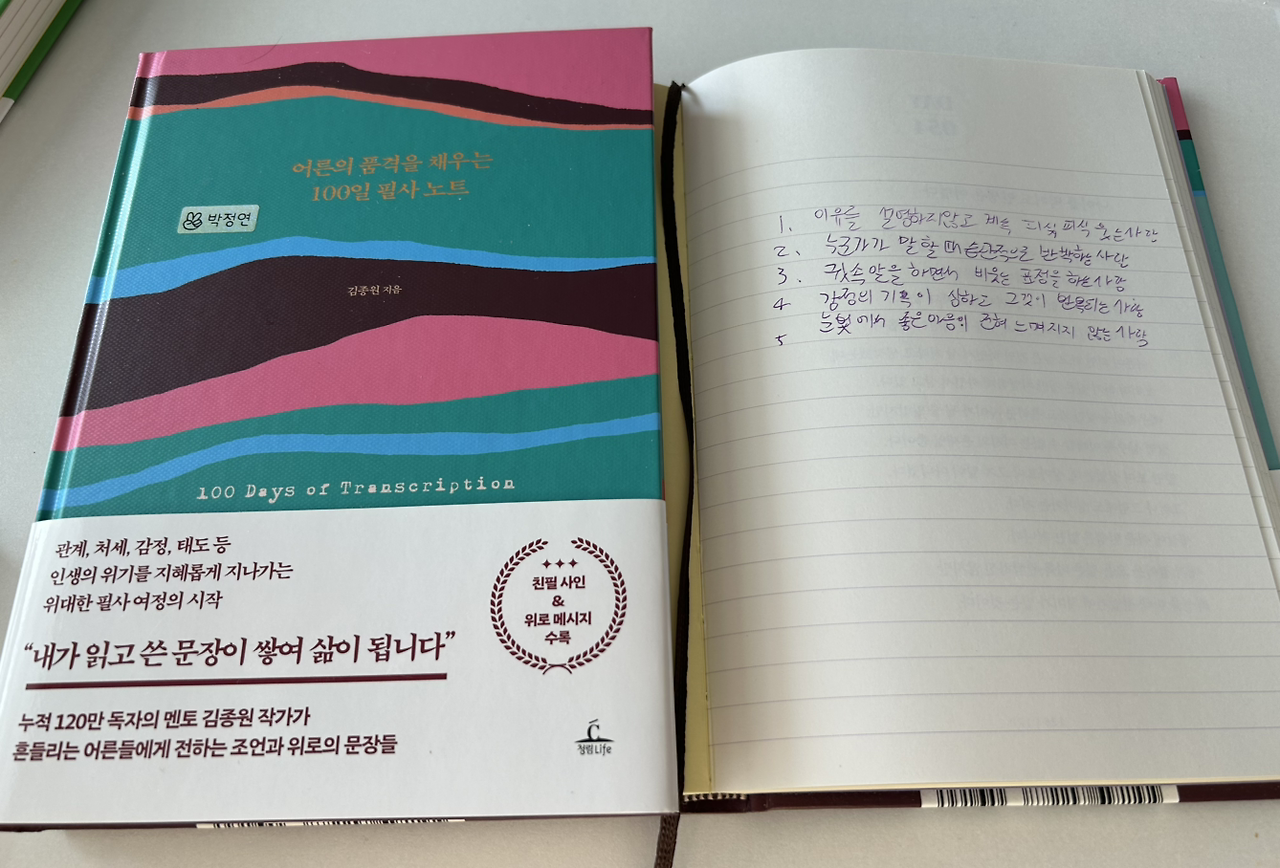 어른의 품격을 채우는
100일 필사 노트
박정연
김종원 지음
100 Days of Transcription
관계, 처세, 감정, 태도 등
인생의 위기를 지혜롭게 지나가는
위대한 필사 여정의 시작
“내가 읽고 쓴 문장이 쌓여 삶이 됩니다”
누적 120만 독자의 멘토 김종원 작가가
흔들리는 어른들에게 전하는 조언과 위로의 문장들
친필 사인
&
위로 메시지
수록
청림Life
1. 이유를 설명하지않고 계속 피식 피식 웃는사람
2. 누군가가 말할때 습관적으로 반박하는 사람
3. 귓속말을 하면서 비웃는 표정을 하는사람
4 감정의 기복이 심하고 그것이 반복되는 사람
5 눈빛에서 좋은마음이 전혀 느껴지지 않는 사람